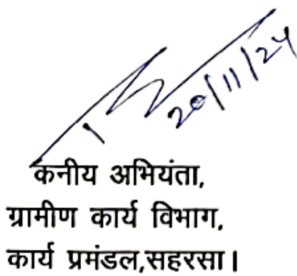 20/11/24
कनीय अभियंता,
ग्रामीण कार्य विभाग,
कार्य प्रमंडल,सहरसा।